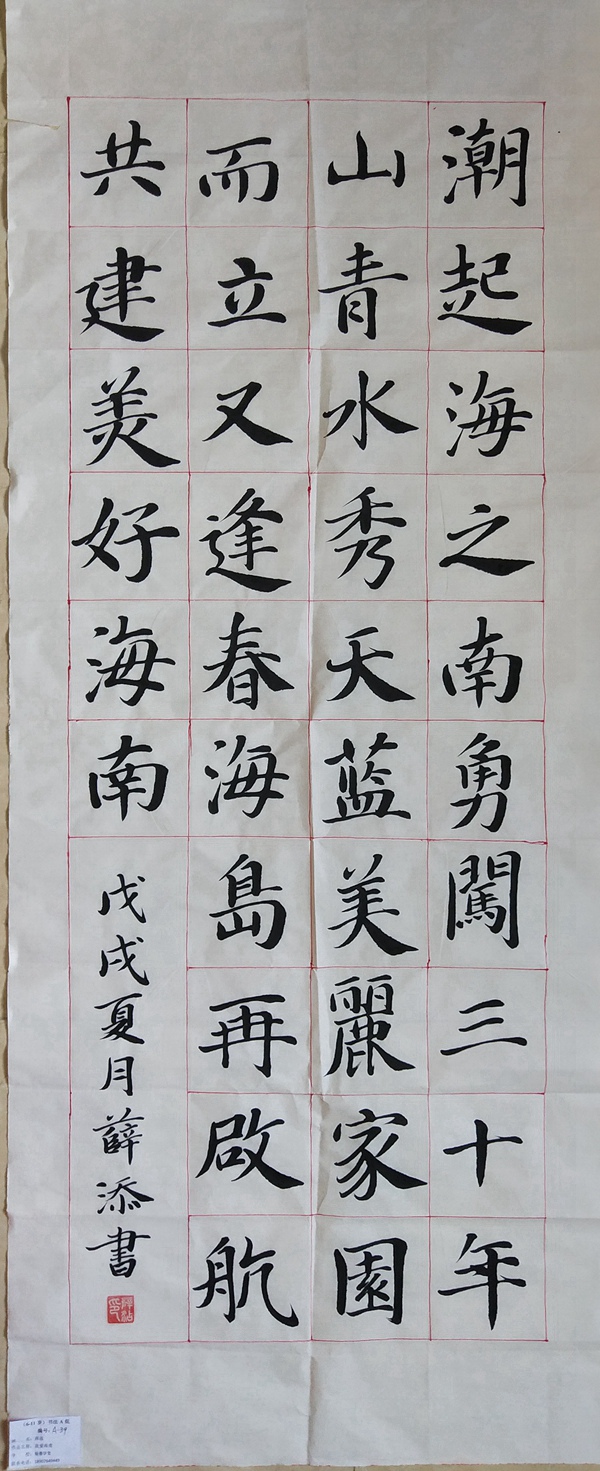 潮起海之南勇闖三十年
山青水秀天蓝美麗家園
而立又逢春海島再啟航
共建美好海南
戊戌夏月薛添書